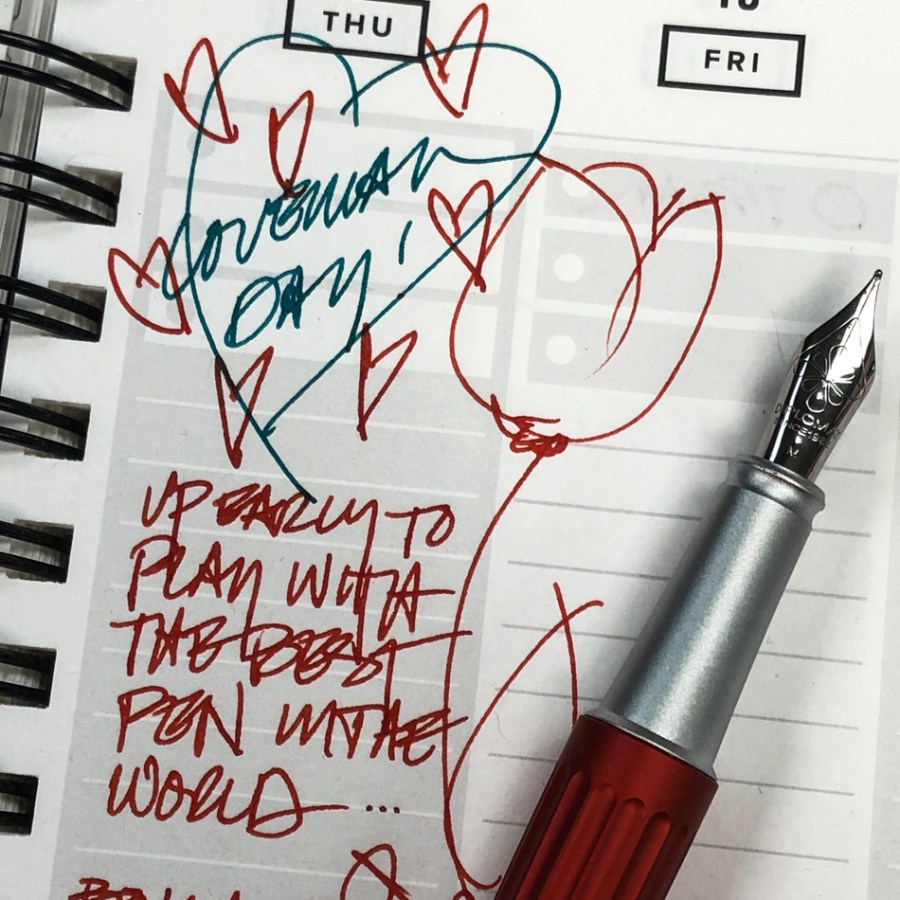 THU
FRI
LOVEMAN
DAY!
UP EARLY TO
PLAY WITH
THE BEST
PEN IN THE
WORLD ...
M